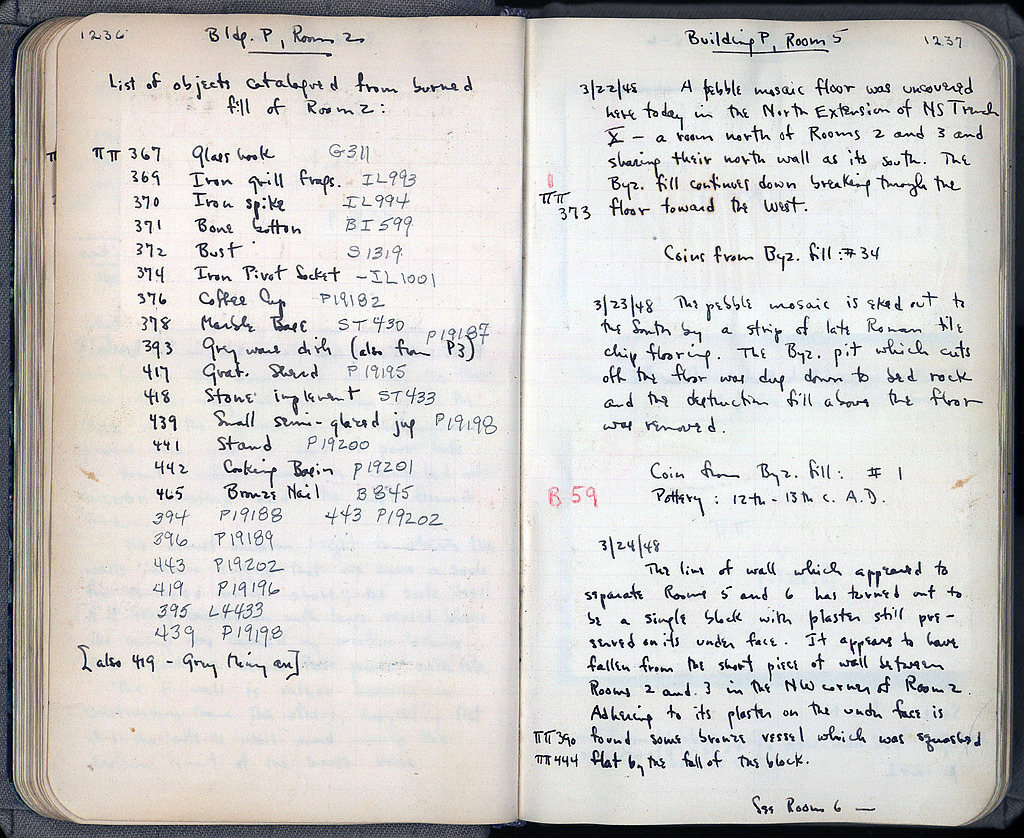 1236
Bldg. P, Room 2
List of objects catalogued from burned
fill of Room 2:
ΠΠ 367 Glass hook G311
369 Iron grill frags. IL993
370 Iron spike IL994
371 Bone button BI 599
372 Bust S1319
374 Iron Pivot Socket - IL1001
376 Coffee Cup P19182
378 Marble Base ST 430
393 Grey ware dish (also from P3) P19187
417 Gouged Sherd P19195
418 Stone implement ST433
439 Small semi-glazed jug P19198
441 Stand P19200
442 Cooking Basin P19201
465 Bronze Nail B845
394 P19188 443 P19202
396 P19189
443 P19202
419 P19196
395 L4433
439 P19198
[also 419 - Gray
Building P, Room 5
1237
3/22/48 A pebble mosaic floor was uncovered
here today in the North Extension of NS Trench
X - a room north of Rooms 2 and 3 and
sharing their north wall as its south. The
Byz. fill continues down breaking through the
ΠΠ 373 floor toward the west.
Coins from Byz. fill: #34
3/23/48 The pebble mosaic is eked out to
the South by a strip of late Roman tile
chip flooring. The Byz. pit which cuts
off the floor was dug down to bed rock
and the destruction fill above the floor
was removed.
Coin from Byz. fill: # 1
B 59 Pottery: 12th - 13th c. A.D.
3/24/48
The line of wall which appeared to
separate Rooms 5 and 6 has turned out to
be a single block with plaster still pre-
served on its under face. It appears to have
fallen from the short piece of wall between
Rooms 2 and 3 in the NW corner of Room 2.
Adhering to its plaster on the under face is
ΠΠ 390 found some bronze vessel which was squashed
ΠΠ 444 flat by the fall of the block.
See Room 6 —